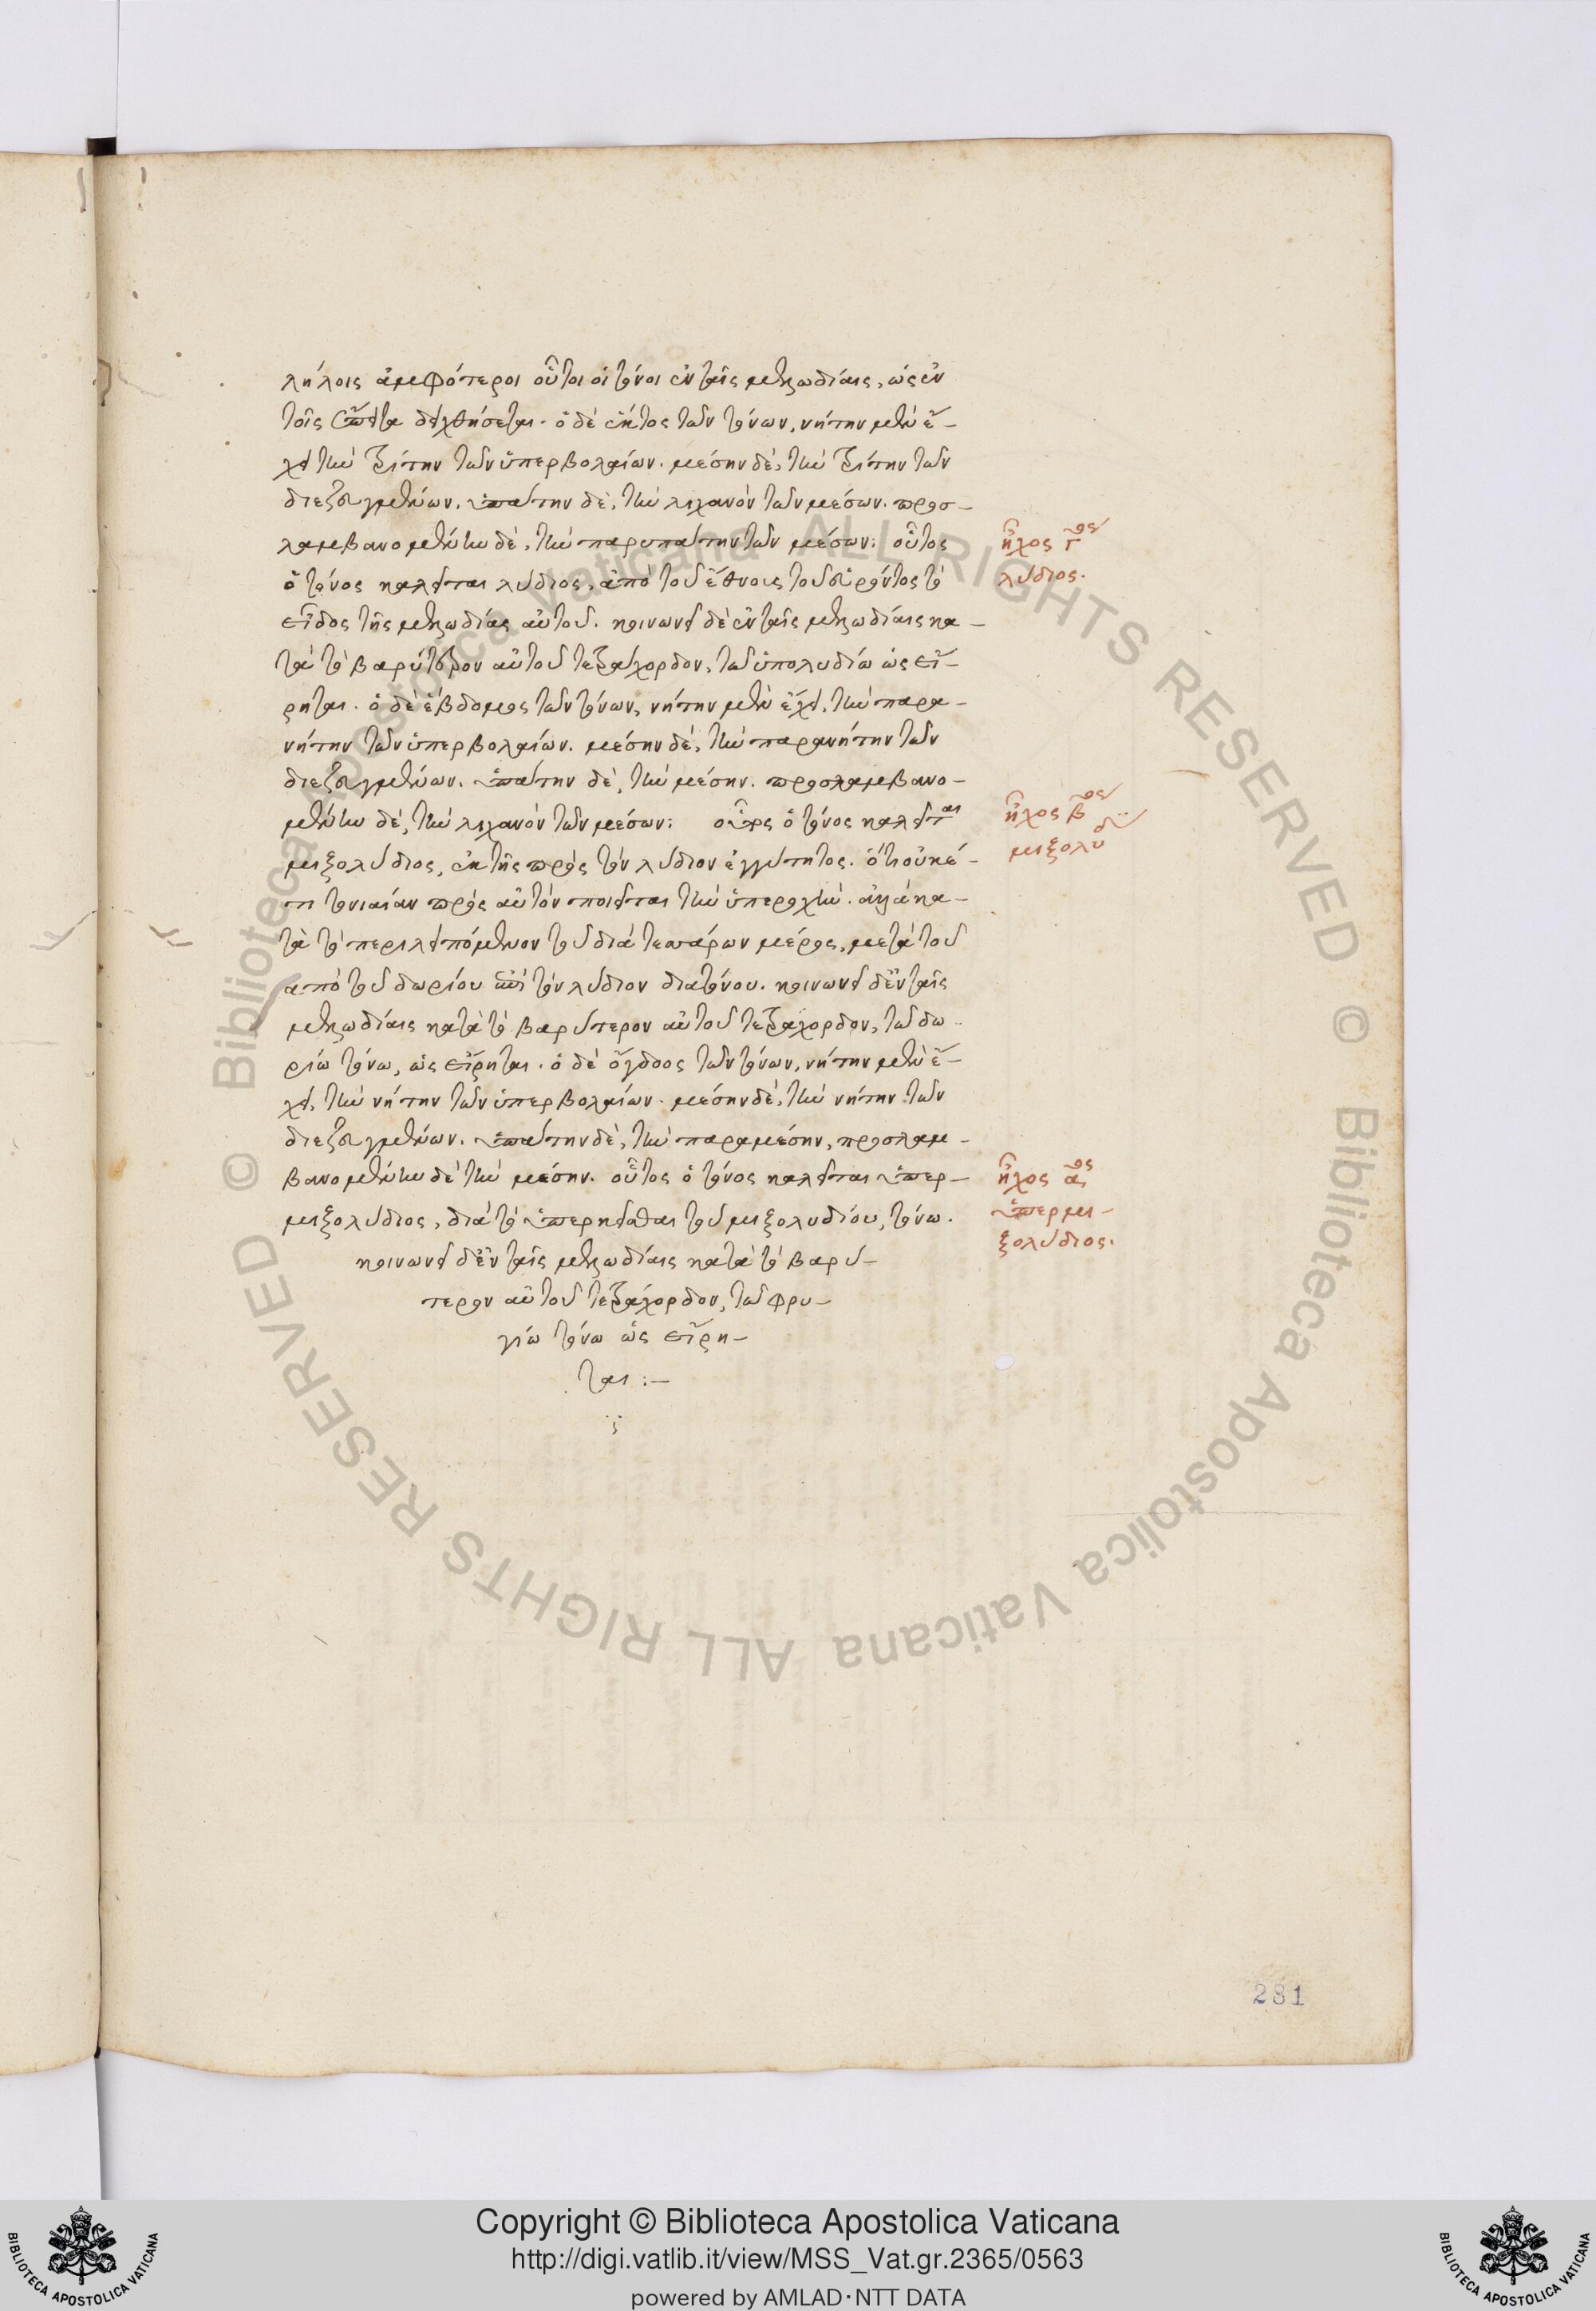 λήλοις ἀμφότεροι οὗτοι οἱ τόνοι ἐν ταῖς μελῳδίαις, ὡς ἐν
τοῖς ἔπειτα δειχθήσεται. ὁ δὲ ἕκτος τῶν τόνων, νήτην μὲν ἔ-
χει τὴν τρίτην τῶν ὑπερβολαίων. μέσην δὲ, τὴν τρίτην τῶν
διεζευγμένων. ὑπάτην δὲ, τὴν λιχανὸν τῶν μέσων. προσ-
λαμβανομένην δὲ, τὴν παρυπάτην τῶν μέσων: οὗτος
ὁ τόνος καλεῖται λύδιος, ἀπὸ τοῦ ἔθνους τοῦ εὑρόντος τὸ
εἶδος τῆς μελῳδίας αὐτοῦ. κοινωνεῖ δὲ ἐν ταῖς μελῳδίαις κα-
τὰ τὸ βαρύτερον αὐτοῦ τετράχορδον, τῷ ὑπολυδίῳ ὡς εἴ-
ρηται. ὁ δὲ ἕβδομος τῶν τόνων, νήτην μὲν ἔχει, τὴν παρα-
νήτην τῶν ὑπερβολαίων. μέσην δὲ, τὴν παρανήτην τῶν
διεζευγμένων. ὑπάτην δὲ, τὴν μέσην. προσλαμβανο-
μένην δὲ, τὴν λιχανὸν τῶν μέσων: οὗτος ὁ τόνος καλεῖται
μιξολύδιος, ἐκ τῆς πρὸς τὸν λύδιον ἐγγύτητος. ὅτι οὐκέ-
τι τονιαίαν πρὸς αὐτὸν ποιεῖται τὴν ὑπεροχήν. ἀλλὰ κα-
τὰ τὸ περιλειπόμενον τοῦ διὰ τεσσάρων μέρος, μετὰ τοῦ
ἀπὸ τοῦ δωρίου ἐπὶ τὸν λύδιον διατόνου. κοινωνεῖ δ' ἐν ταῖς
μελῳδίαις κατὰ τὸ βαρύτερον αὐτοῦ τετράχορδον, τῷ δω-
ρίῳ τόνῳ, ὡς εἴρηται. ὁ δὲ ὄγδοος τῶν τόνων, νήτην μὲν ἔ-
χει, τὴν νήτην τῶν ὑπερβολαίων. μέσην δὲ, τὴν νήτην τῶν
διεζευγμένων. ὑπάτην δὲ, τὴν παραμέσην, προσλαμ-
βανομένην δὲ τὴν μέσην. οὗτος ὁ τόνος καλεῖται ὑπερ-
μιξολύδιος, διὰ τὸ ὑπερκεῖσθαι τοῦ μιξολυδίου, τόνῳ.
κοινωνεῖ δ' ἐν ταῖς μελῳδίαις κατὰ τὸ βαρύ-
τερον αὐτοῦ τετράχορδον, τῷ φρυ-
γίῳ τόνῳ ὡς εἴρη-
ται :-
ἦχος γος
λύδιος.
ἦχος βος
μιξολύδ
ἦχος αος
ὑπερμι-
ξολύδιος.
281
Copyright © Biblioteca Apostolica Vaticana
http://digi.vatlib.it/view/MSS_Vat.gr.2365/0563
powered by AMLAD·NTT DATA
© Biblioteca Apostolica Vaticana ALL RIGHTS RESERVED
© Biblioteca Apostolica Vaticana ALL RIGHTS RESERVED
BIBLIOTECA APOSTOLICA VATICANA
BIBLIOTECA APOSTOLICA VATICANA